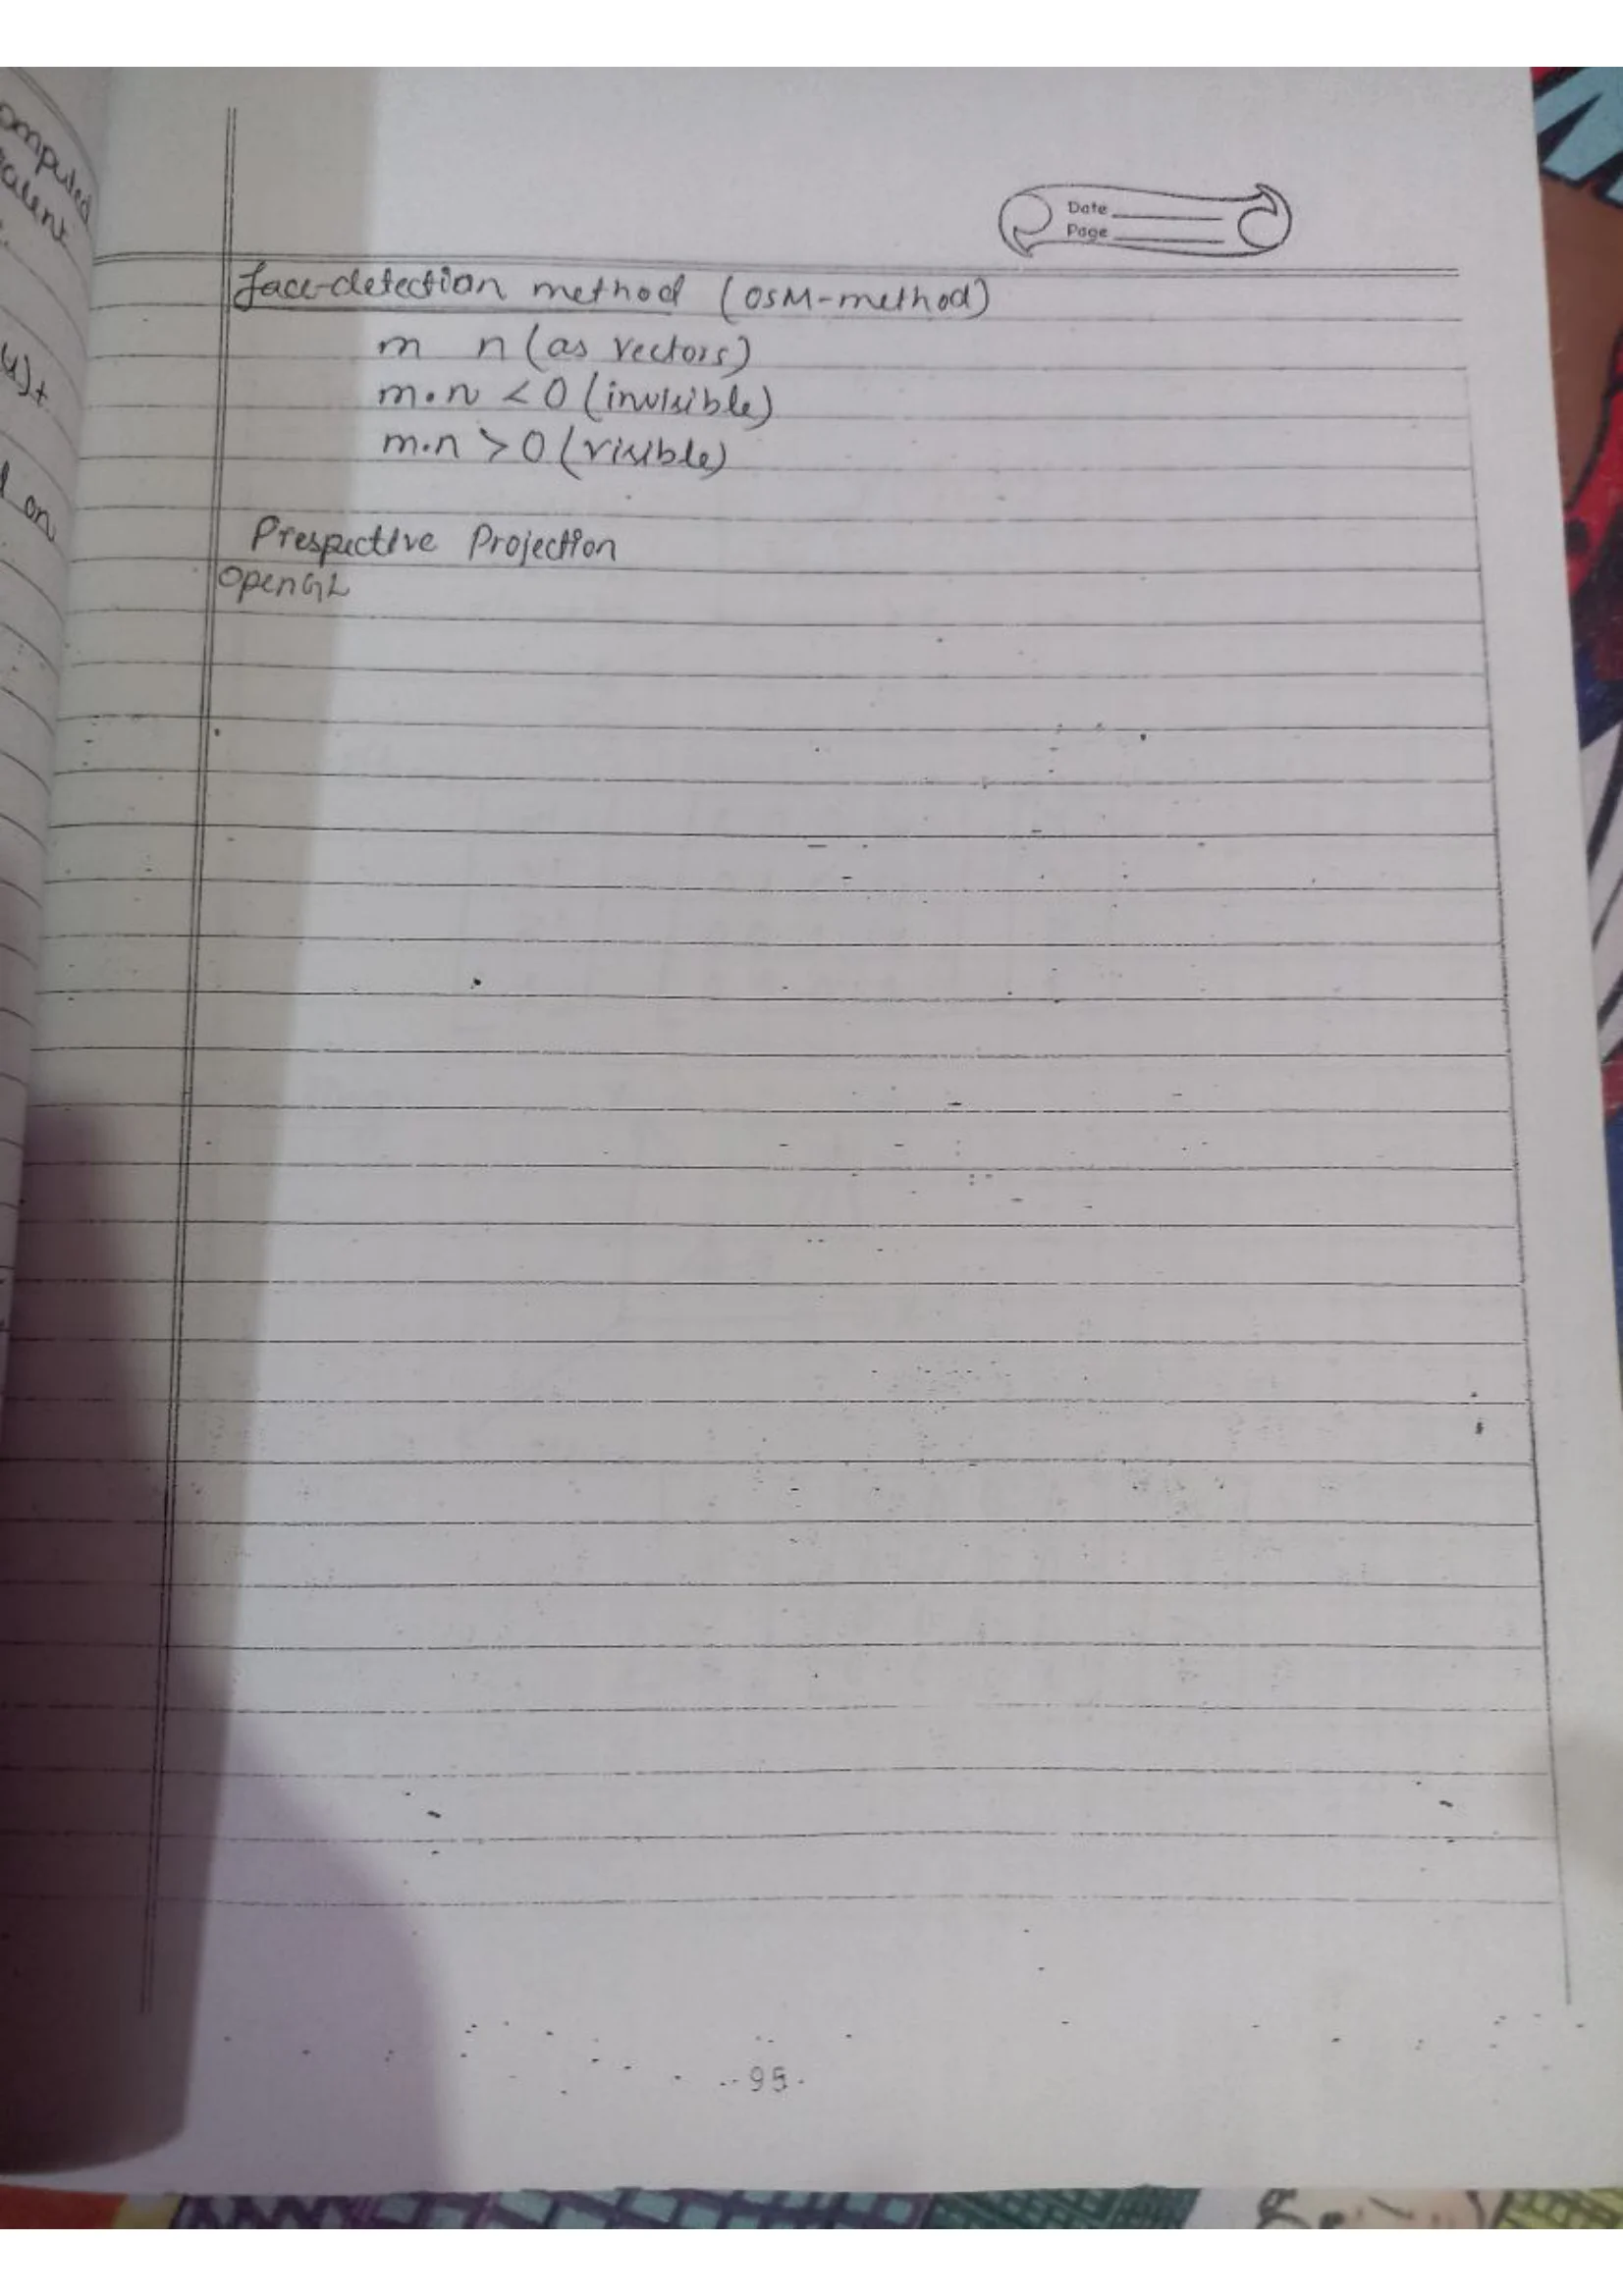 omputed
alent
Date
Page
Face-detection method (OSM-method)
m n (as vectors)
m.n < 0 (invisible)
m.n > 0 (visible)
u)+
on
Prespective Projection
OpenGL
95